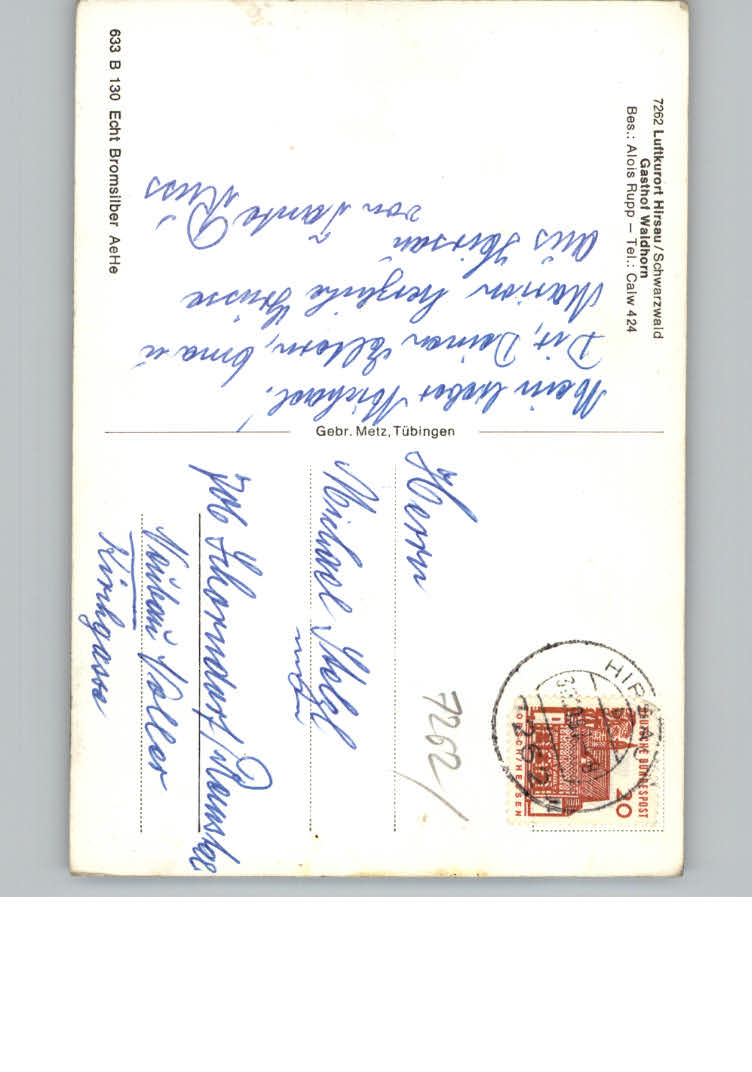 7262 Luftkurort Hirsau/Schwarzwald
Gasthof Waldhorn
Bes.: Alois Rupp – Tel.: Calw 424
Mein lieber Michael!
Dir, Deinen Eltern, Oma u
Marion herzliche Grüsse
aus Hirsau
von Tante
633 B 130 Echt Bromsilber AeHe
Gebr. Metz, Tübingen
HIRSAU
7262
DEUTSCHE BUNDESPOST
20
LORSCH/HESSEN
7262/
Herrn
Michael
706 Schorndorf/Remstal
Neubau Koller
Kirchgasse